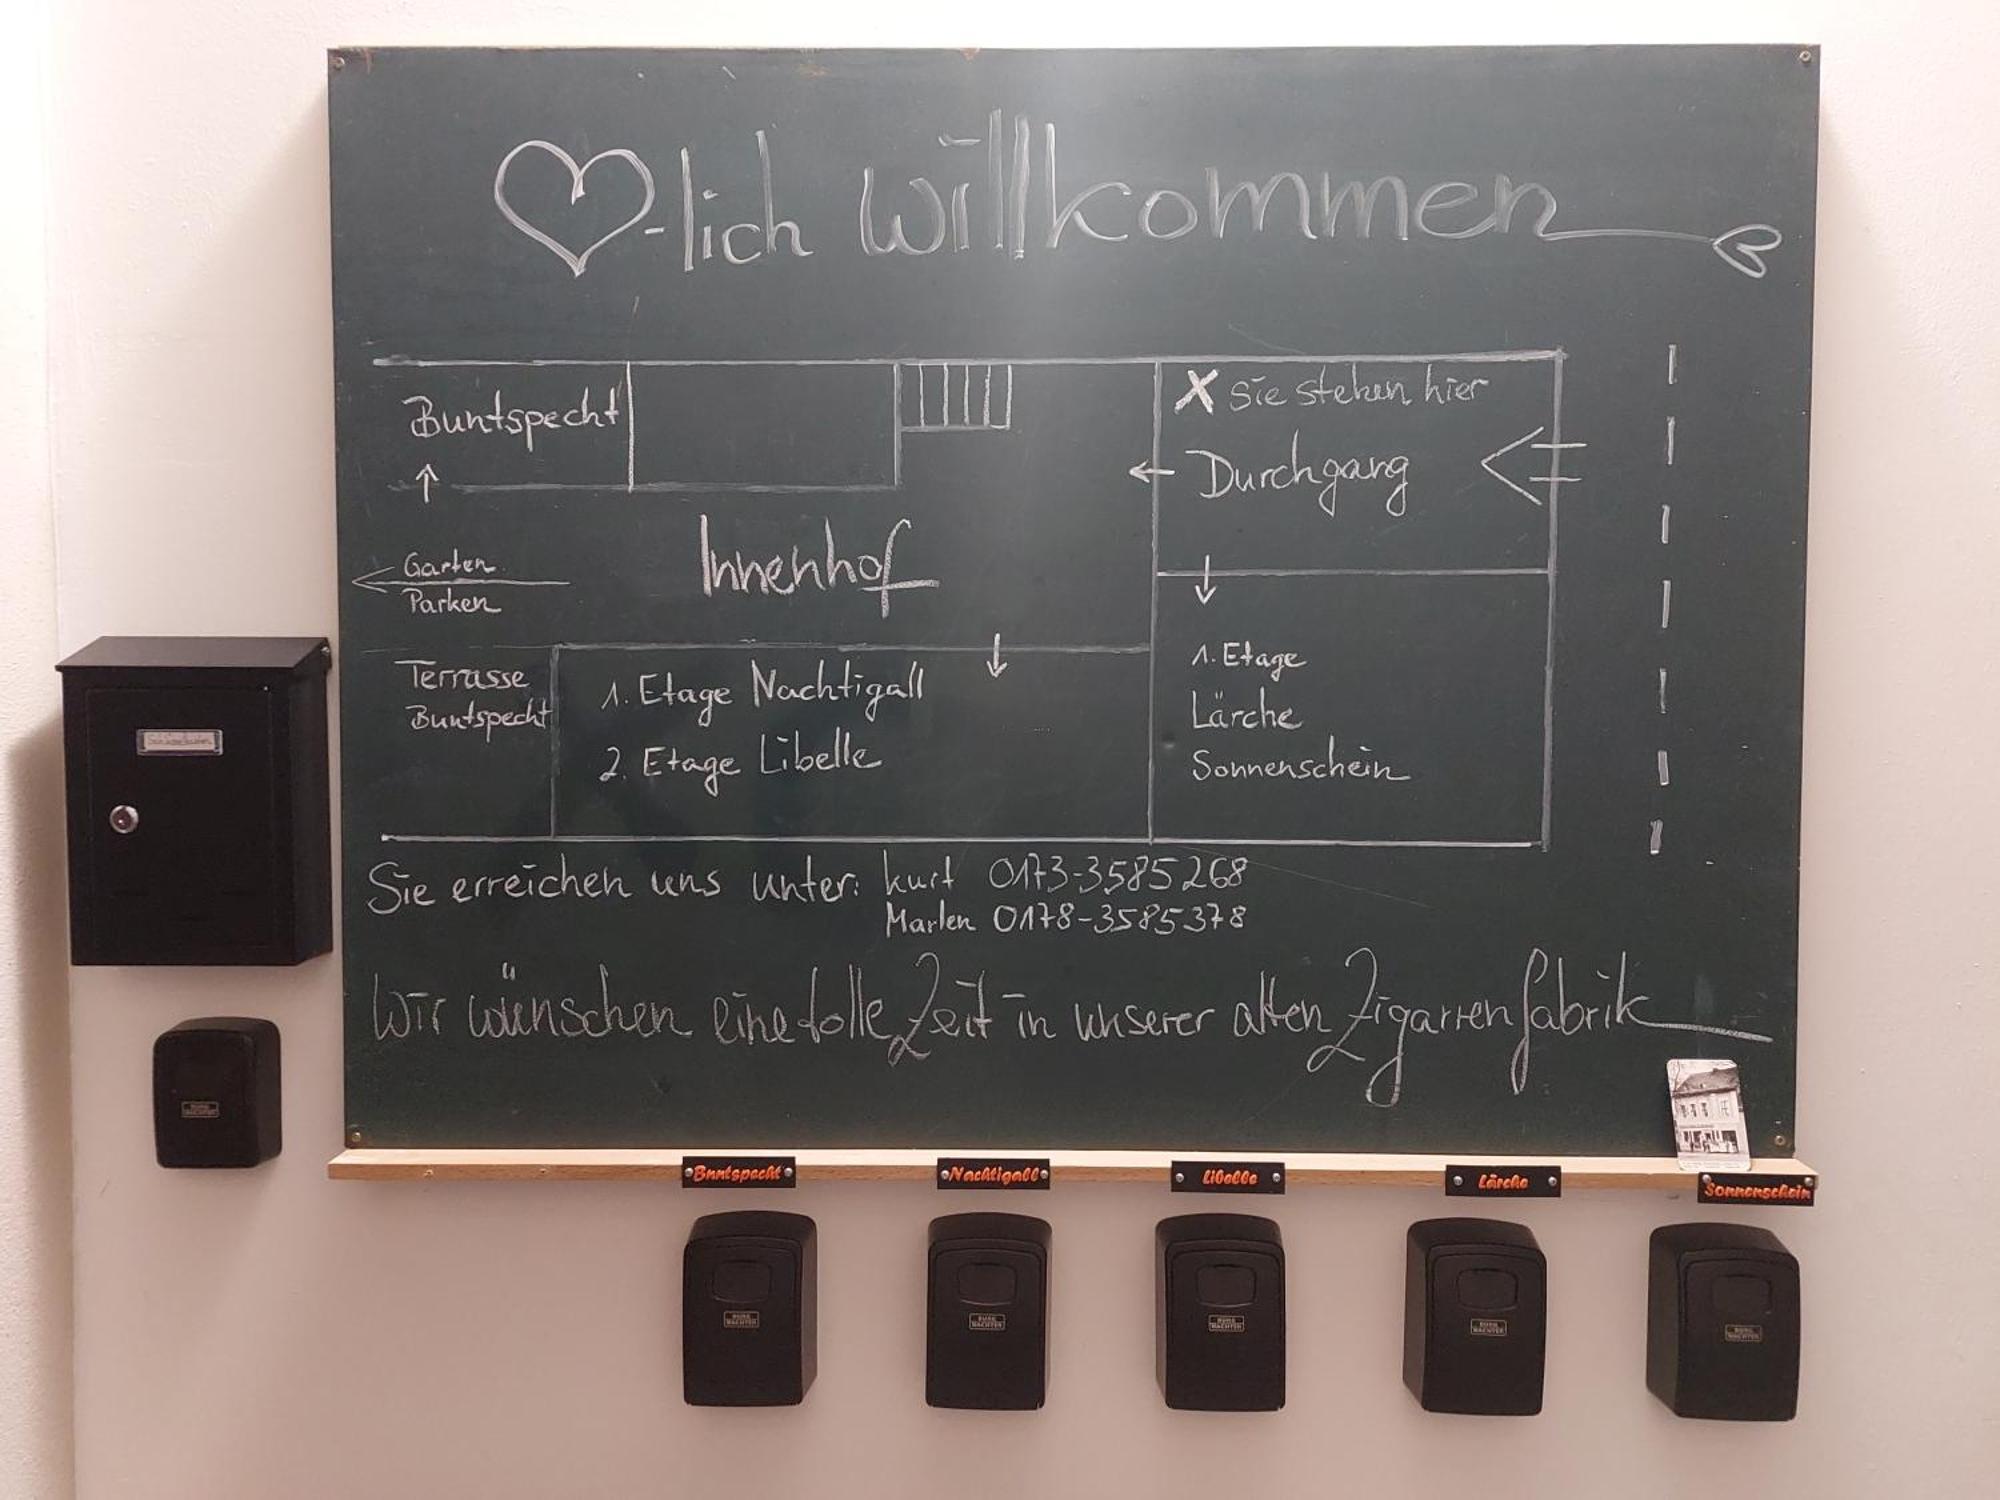 ♡-lich willkommen
Buntspecht
X Sie stehen hier
← Durchgang
Innenhof
Garten
Parken
Terrasse
Buntspecht
1. Etage Nachtigall
2. Etage Libelle
1. Etage
Lärche
Sonnenschein
Sie erreichen uns unter: Kurt 0173-3585268
Marlen 0178-3585378
Wir wünschen eine tolle Zeit in unserer alten Zigarrenfabrik
Buntspecht
Nachtigall
Libelle
Lärche
Sonnenschein
BURG
WÄCHTER
BURG
WÄCHTER
BURG
WÄCHTER
BURG
WÄCHTER
BURG
WÄCHTER
BURG
WÄCHTER